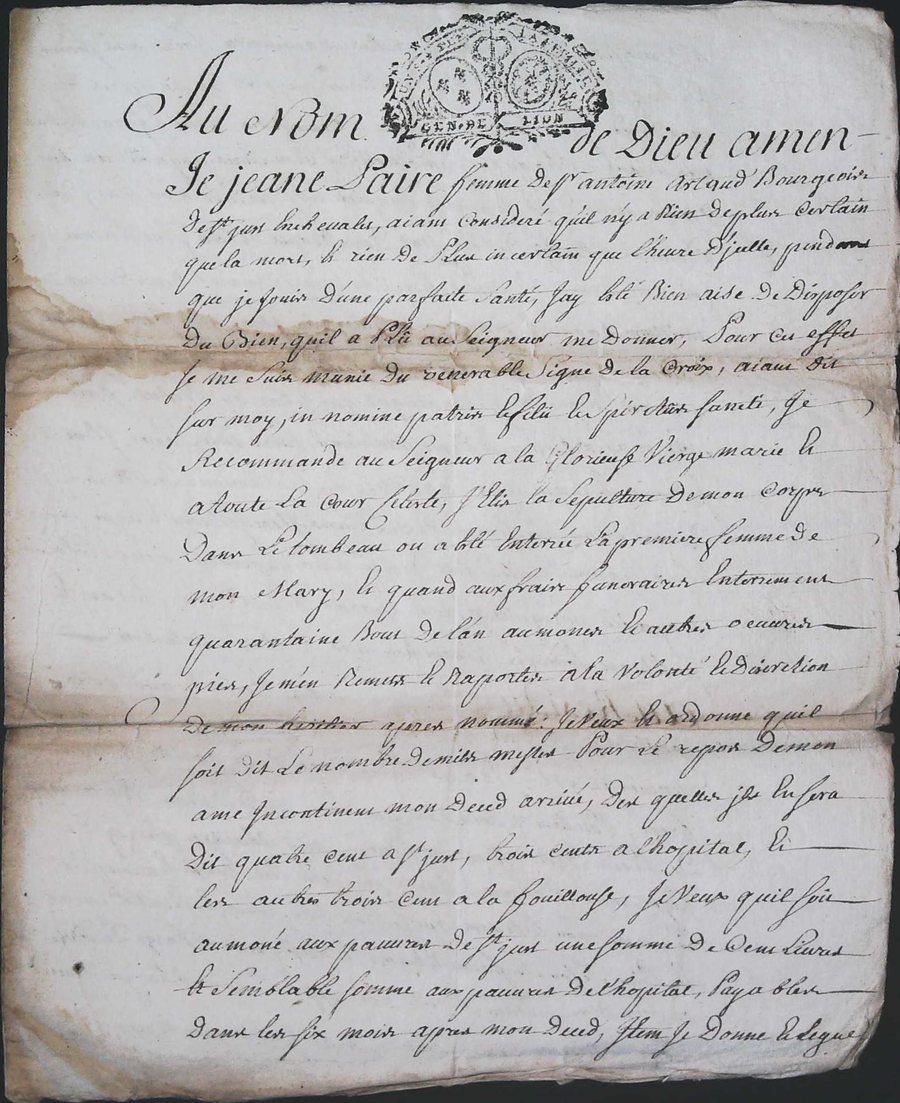 GEN. DE LION
Au Nom de Dieu amen
Je jeane Paire femme de Sr antoine Artaud Bourgeois
de St just en chevalet, aiant consideré qu'il n'y a Rien de plus certain
que la mort, et rien de Plus incertain que l'heure d'jcelle, pendant
que je jouis d'une parfaite Santé, Jay Eté Bien aise de Disposer
Du Bien, quil a Plû au Seigneur me Donner, Pour cet effet
Je me Suis munie Du venerable Signe de la Croix, aiant dit
sur moy, in nomine patris et filii et Spiritus sancti, Je
Recommande au Seigneur a la Glorieuse Vierge marie Et
a toute La Cour Celeste, J'Elis la Sepulture de mon Corps
Dans Le tombeau ou a Eté Enterrée La premiere femme de
mon Mary, Et quand aux frais funeraires Enterrement
quarantaine Bout de l'an aumones Et autres oeuvres
pies, Je m'en Remets Et Raporte a la Volonté Et Discretion
De mon heritier apres nommé. Je Veux Et ordonne quil
soit dit Le nombre de mille messes Pour Le repos De mon
ame Jncontinent mon Deced arrivé, Des quelles jl En sera
Dit quatre cent a St just, trois cents a l'hopital, Et
les autres trois Cent a la fouillouse, Je Veux quil soit
aumoné aux pauvres de St just une somme de Cent Livres
Et Semblable somme aux pauvres De l'hopital, Payables
Dans les six mois apres mon Deced, Jtem Je Donne Et Legue